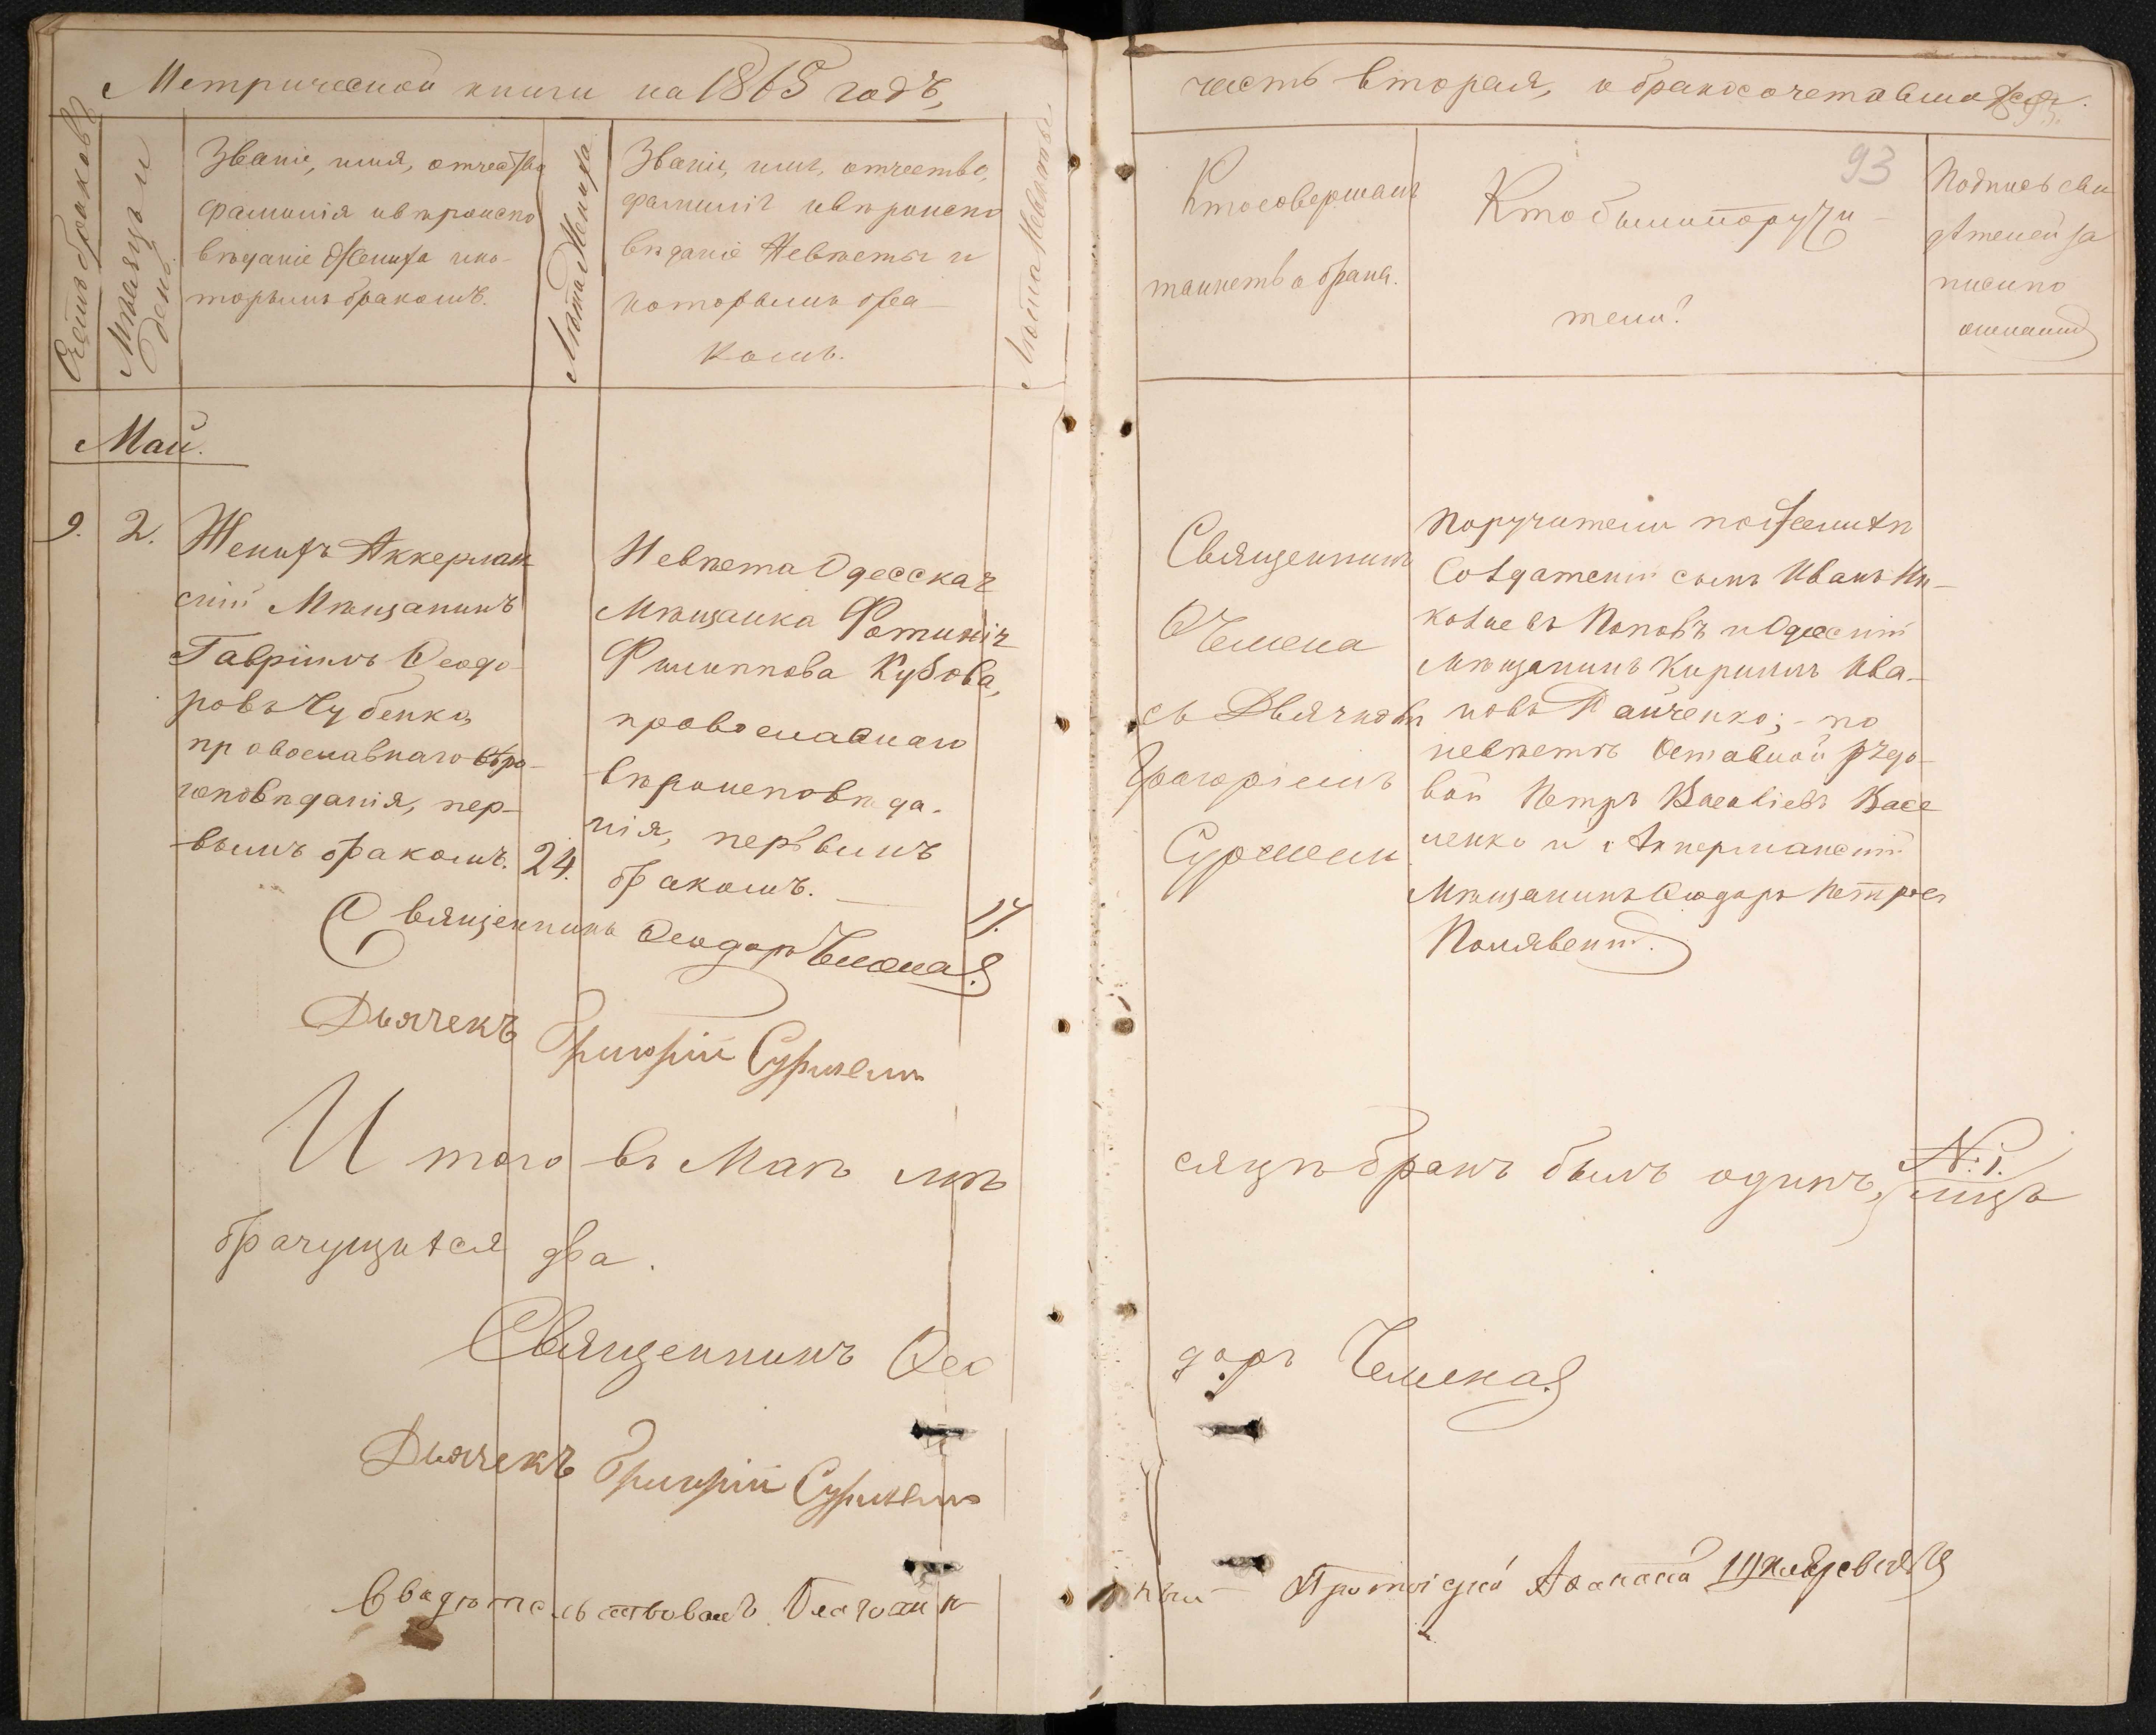 Метрической книги на 1865 годъ,
часть вторая, о бракосочетавшихся.
93
Счетъ браковъ
Мѣсяцъ и день.
Званіе, имя, отчество
фамилія и вѣроиспо
вѣданіе Жениха и ко-
торымъ бракомъ.
Лѣта Жениха
Званіе, имя, отчество,
фамилія и вѣроиспо
вѣданіе Невѣсты и
которымъ бра-
комъ.
Лѣта Невѣсты
Кто совершалъ
таинство брака.
Кто были поручи-
тели?
Подпись сви
дѣтелей за
писи по
желанію
Май.
9. 2.
Женихъ Аккерман
скій Мѣщанинъ
Гавріилъ Ѳеодо-
ровъ Чубенко,
православнаго вѣро-
исповѣданія, пер-
вымъ бракомъ. 24.
Невѣста Одесская
Мѣщанка Фотинія
Филиппова Кубова,
православнаго
вѣроисповѣда-
нія, первымъ
бракомъ. 17.
Священникъ
Ѳ Чемена
съ Дьячкомъ
Григоріемъ
Поручители по женихѣ
Солдатскій сынъ Иванъ Ни-
колаевъ Поповъ и Одесскій
мѣщанинъ Кириллъ Ива-
новъ Панченко; - по
невѣстѣ Отставной рядо-
вой Петръ Васильевъ Васи
ленко и Аккерманскій
Мѣщанинъ Ѳеодоръ Петровъ
Священникъ Ѳеодоръ Чемена
Дьячекъ Григорій
Итого въ Маѣ мѣ
сяцѣ бракъ былъ одинъ, N. 1. лицъ
брачущихся два.
Священникъ Ѳео
доръ Чемена
Дьячекъ Григорій
Свидѣтельствовалъ Благочин
ный Протоіерей Аѳанасій